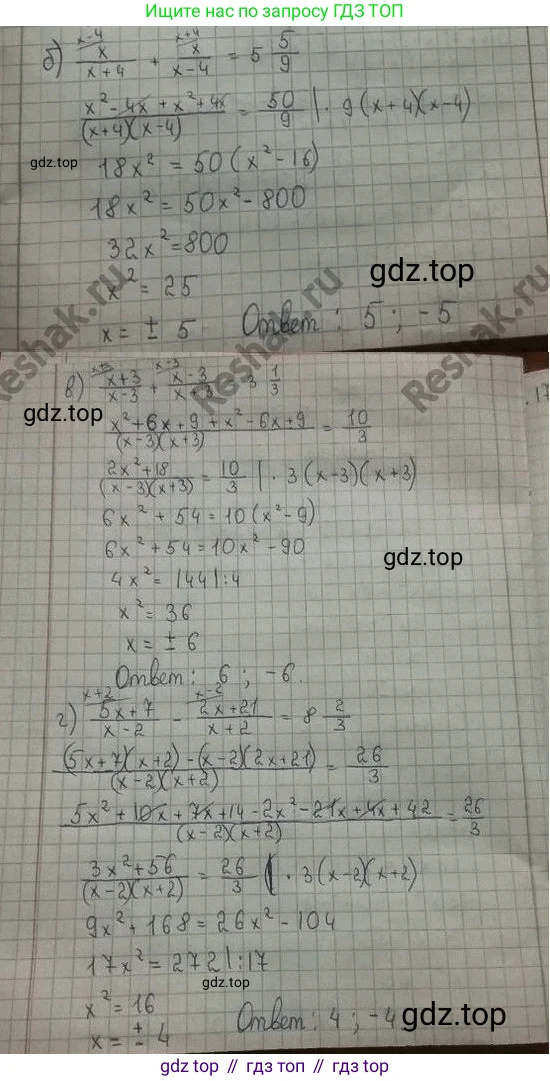 Ищи ответы по запросу ГДЗ ТОП
б) x-4 x/(x+4) + x+4 x/(x-4) = 5 5/9
(x² - 4x + x² + 4x)/((x+4)(x-4)) = 50/9 | · 9(x+4)(x-4)
gdz.top
18x² = 50(x² - 16)
18x² = 50x² - 800
32x² = 800
gdz.top
x² = 25
x = ± 5 Ответ: 5; -5
Reshak.ru
Reshak.ru
в) x+3 (x+3)/(x-3) + x-3 (x-3)/(x+3) = 3 1/3
17
gdz.top
(x² + 6x + 9 + x² - 6x + 9)/((x-3)(x+3)) = 10/3
(2x² + 18)/((x-3)(x+3)) = 10/3 | · 3(x-3)(x+3)
6x² + 54 = 10(x² - 9)
6x² + 54 = 10x² - 90
gdz.top
4x² = 144 |:4
x² = 36
x = ± 6
Ответ: 6; -6.
г) x+2 (5x+7)/(x-2) - x-2 (2x+21)/(x+2) = 8 2/3
((5x+7)(x+2) - (x-2)(2x+21))/((x-2)(x+2)) = 26/3
(5x² + 10x + 7x + 14 - 2x² - 21x + 4x + 42)/((x-2)(x+2)) = 26/3
(3x² + 56)/((x-2)(x+2)) = 26/3 | · 3(x-2)(x+2)
9x² + 168 = 26x² - 104
17x² = 272 |:17
gdz.top
x² = 16
x = ± 4 Ответ: 4; -4
gdz.top // гдз.топ // gdz.top